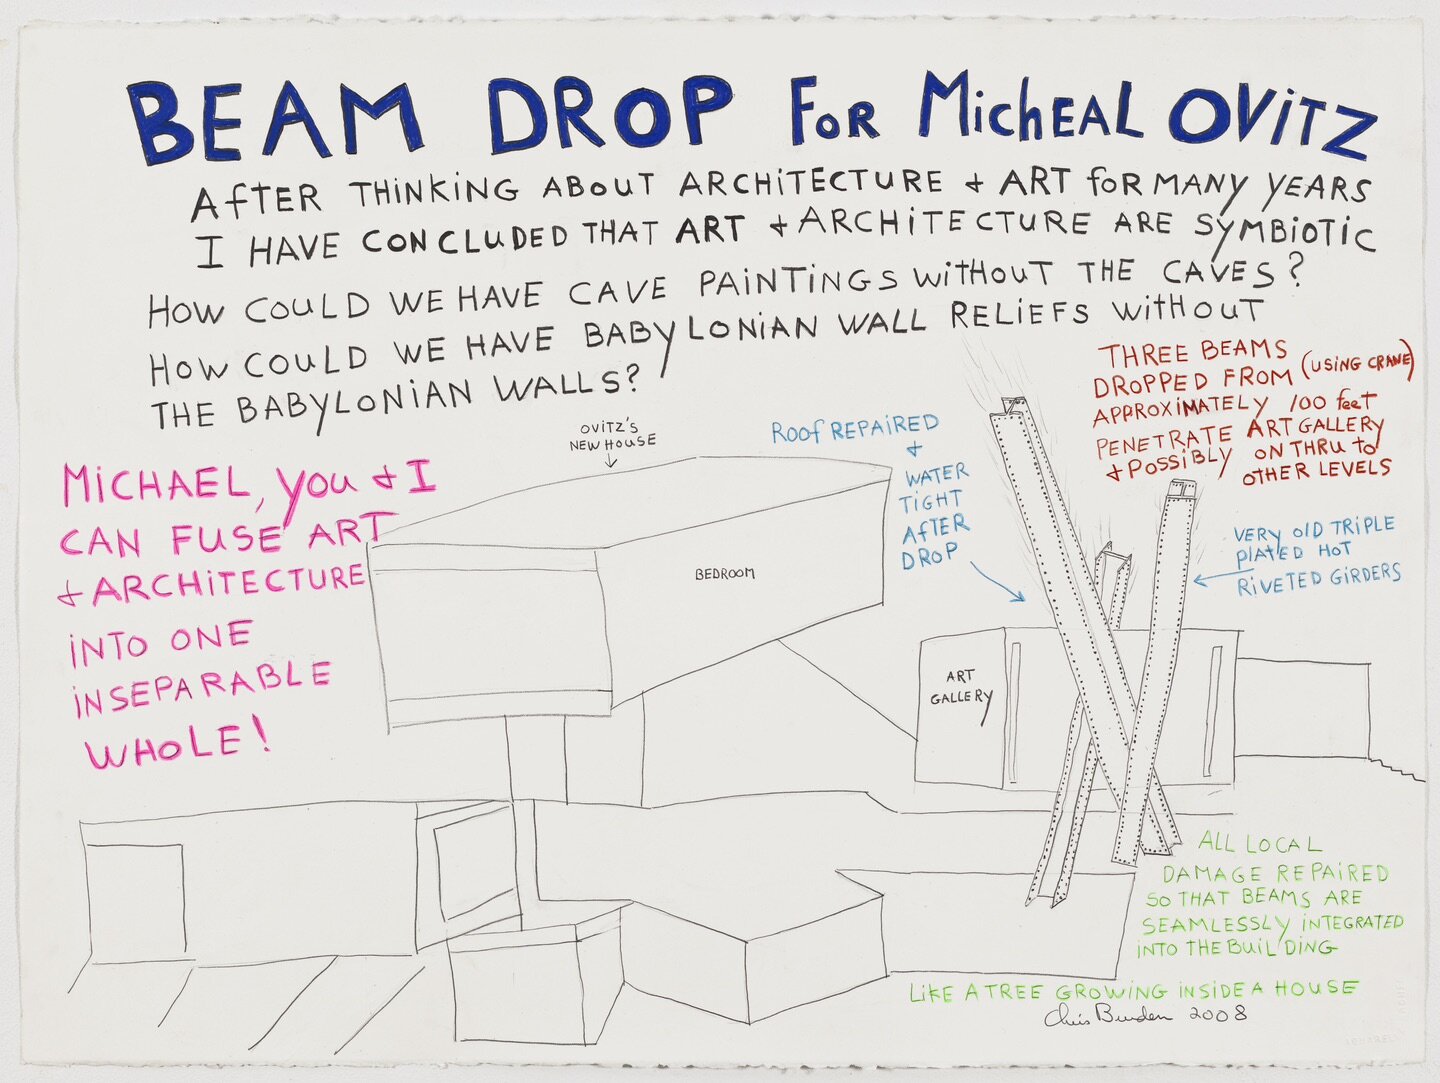 BEAM DROP FOR MicHEAL OViTZ
AfTER THiNKiNG ABOUT ARCHiTECTURE + ART foR MANY YEARS
I HAVE CONCLUDED THAT ART + ARCHiTECTURE ARE SYMBiOTiC
HOW COULD WE HAVE CAVE PAiNTiNGS WiTHOUT THE CAVES?
HOW COULD WE HAVE BABYLONiAN WALL RELiEFS WiTHOUT
THE BABYLONiAN WALLS?
MiCHAEL, you + I
CAN FUSE ART
+ ARCHiTECTURE
iNTO ONE
iNSEPARABLE
WHOLE!
OViTZ'S
NEW HOUSE
BEDROOM
ROOf REPAiRED
+
WATER
TiGHT
AfTER
DROP
THREE BEAMS
DROPPED FROM (USiNG CRANE)
APPROXiMATELY 100 feeT
PENETRATE ART GALLERY
+ POSSiBLY ON THRU TO
OTHER LEVELS
VERY OlD TRiPLE
PlATED HOT
RiVETED GiRDERS
ART
GALLERY
ALL LOCAL
DAMAGE REPAiRED
SO THAT BEAMS ARE
SEAMLESSLY iNTEGRATED
iNTO THE BUiLDiNG
LiKE A TREE GROWiNG iNSiDE A HOUSE
Chris Burden 2008